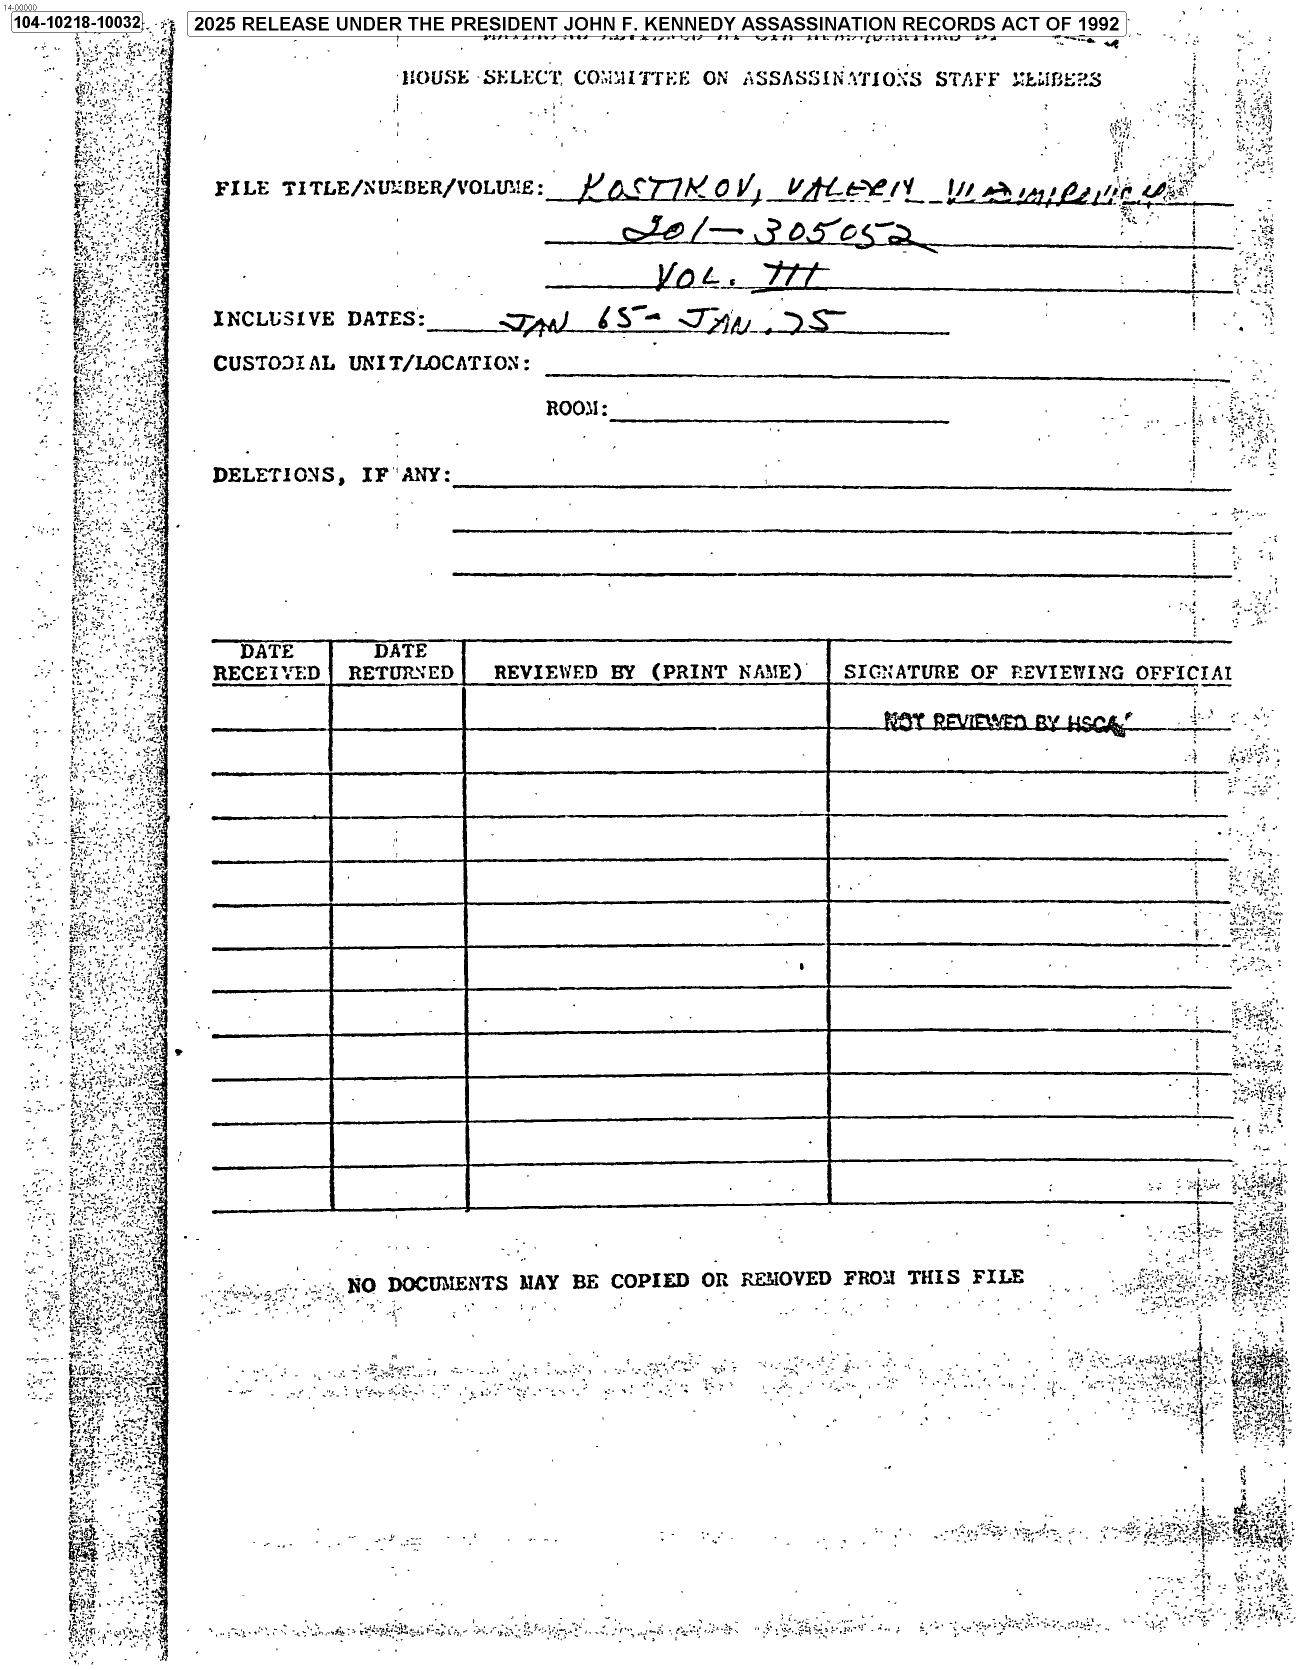 14-00000
104-10218-10032
2025 RELEASE UNDER THE PRESIDENT JOHN F. KENNEDY ASSASSINATION RECORDS ACT OF 1992
HOUSE SELECT COMMITTEE ON ASSASSINATIONS STAFF MEMBERS
FILE TITLE/NUMBER/VOLUME: KOSTIKOV, VALERIY VLADIMIROVICH
201-305052
VOL. III
INCLUSIVE DATES: JAN 65 - JAN. 75
CUSTODIAL UNIT/LOCATION:
ROOM:
DELETIONS, IF ANY:
DATE RECEIVED DATE RETURNED REVIEWED BY (PRINT NAME) SIGNATURE OF REVIEWING OFFICIAL
NOT REVIEWED BY HSCA
NO DOCUMENTS MAY BE COPIED OR REMOVED FROM THIS FILE